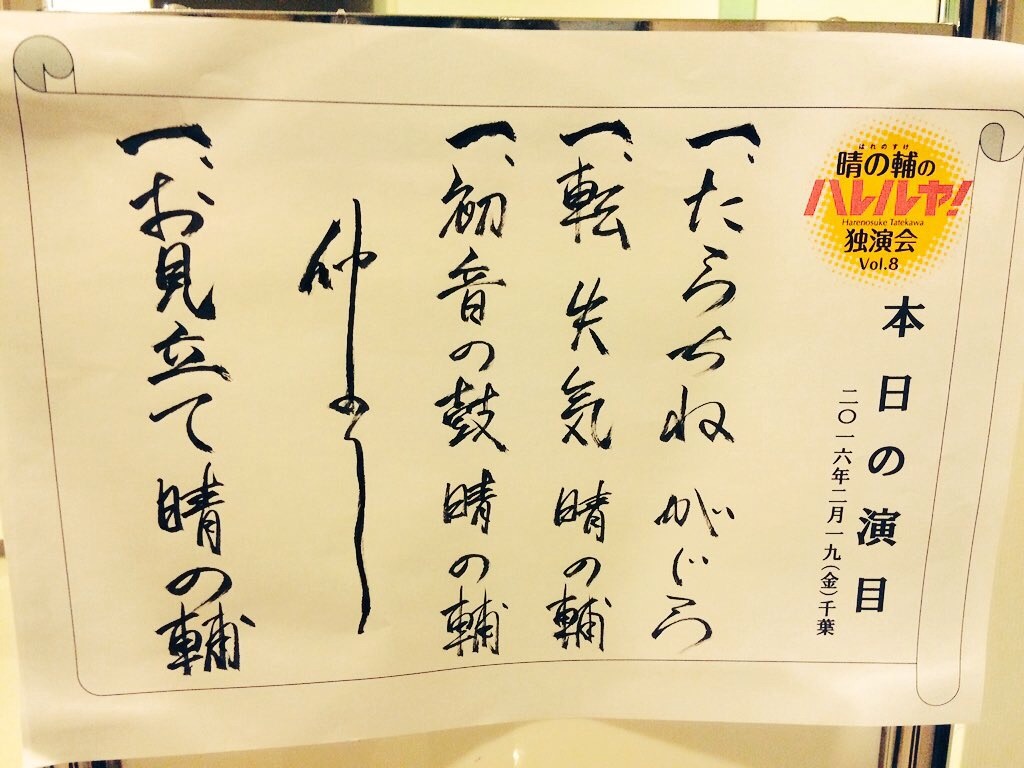 はれのすけ
晴の輔の
ハレルヤ!
Harenosuke Tatekawa
独演会
Vol.8
本日の演目
二〇一六年二月一九(金)千葉
一、たらちね がじら
一、転失気 晴の輔
一、初音の鼓 晴の輔
仲
一、お見立て 晴の輔